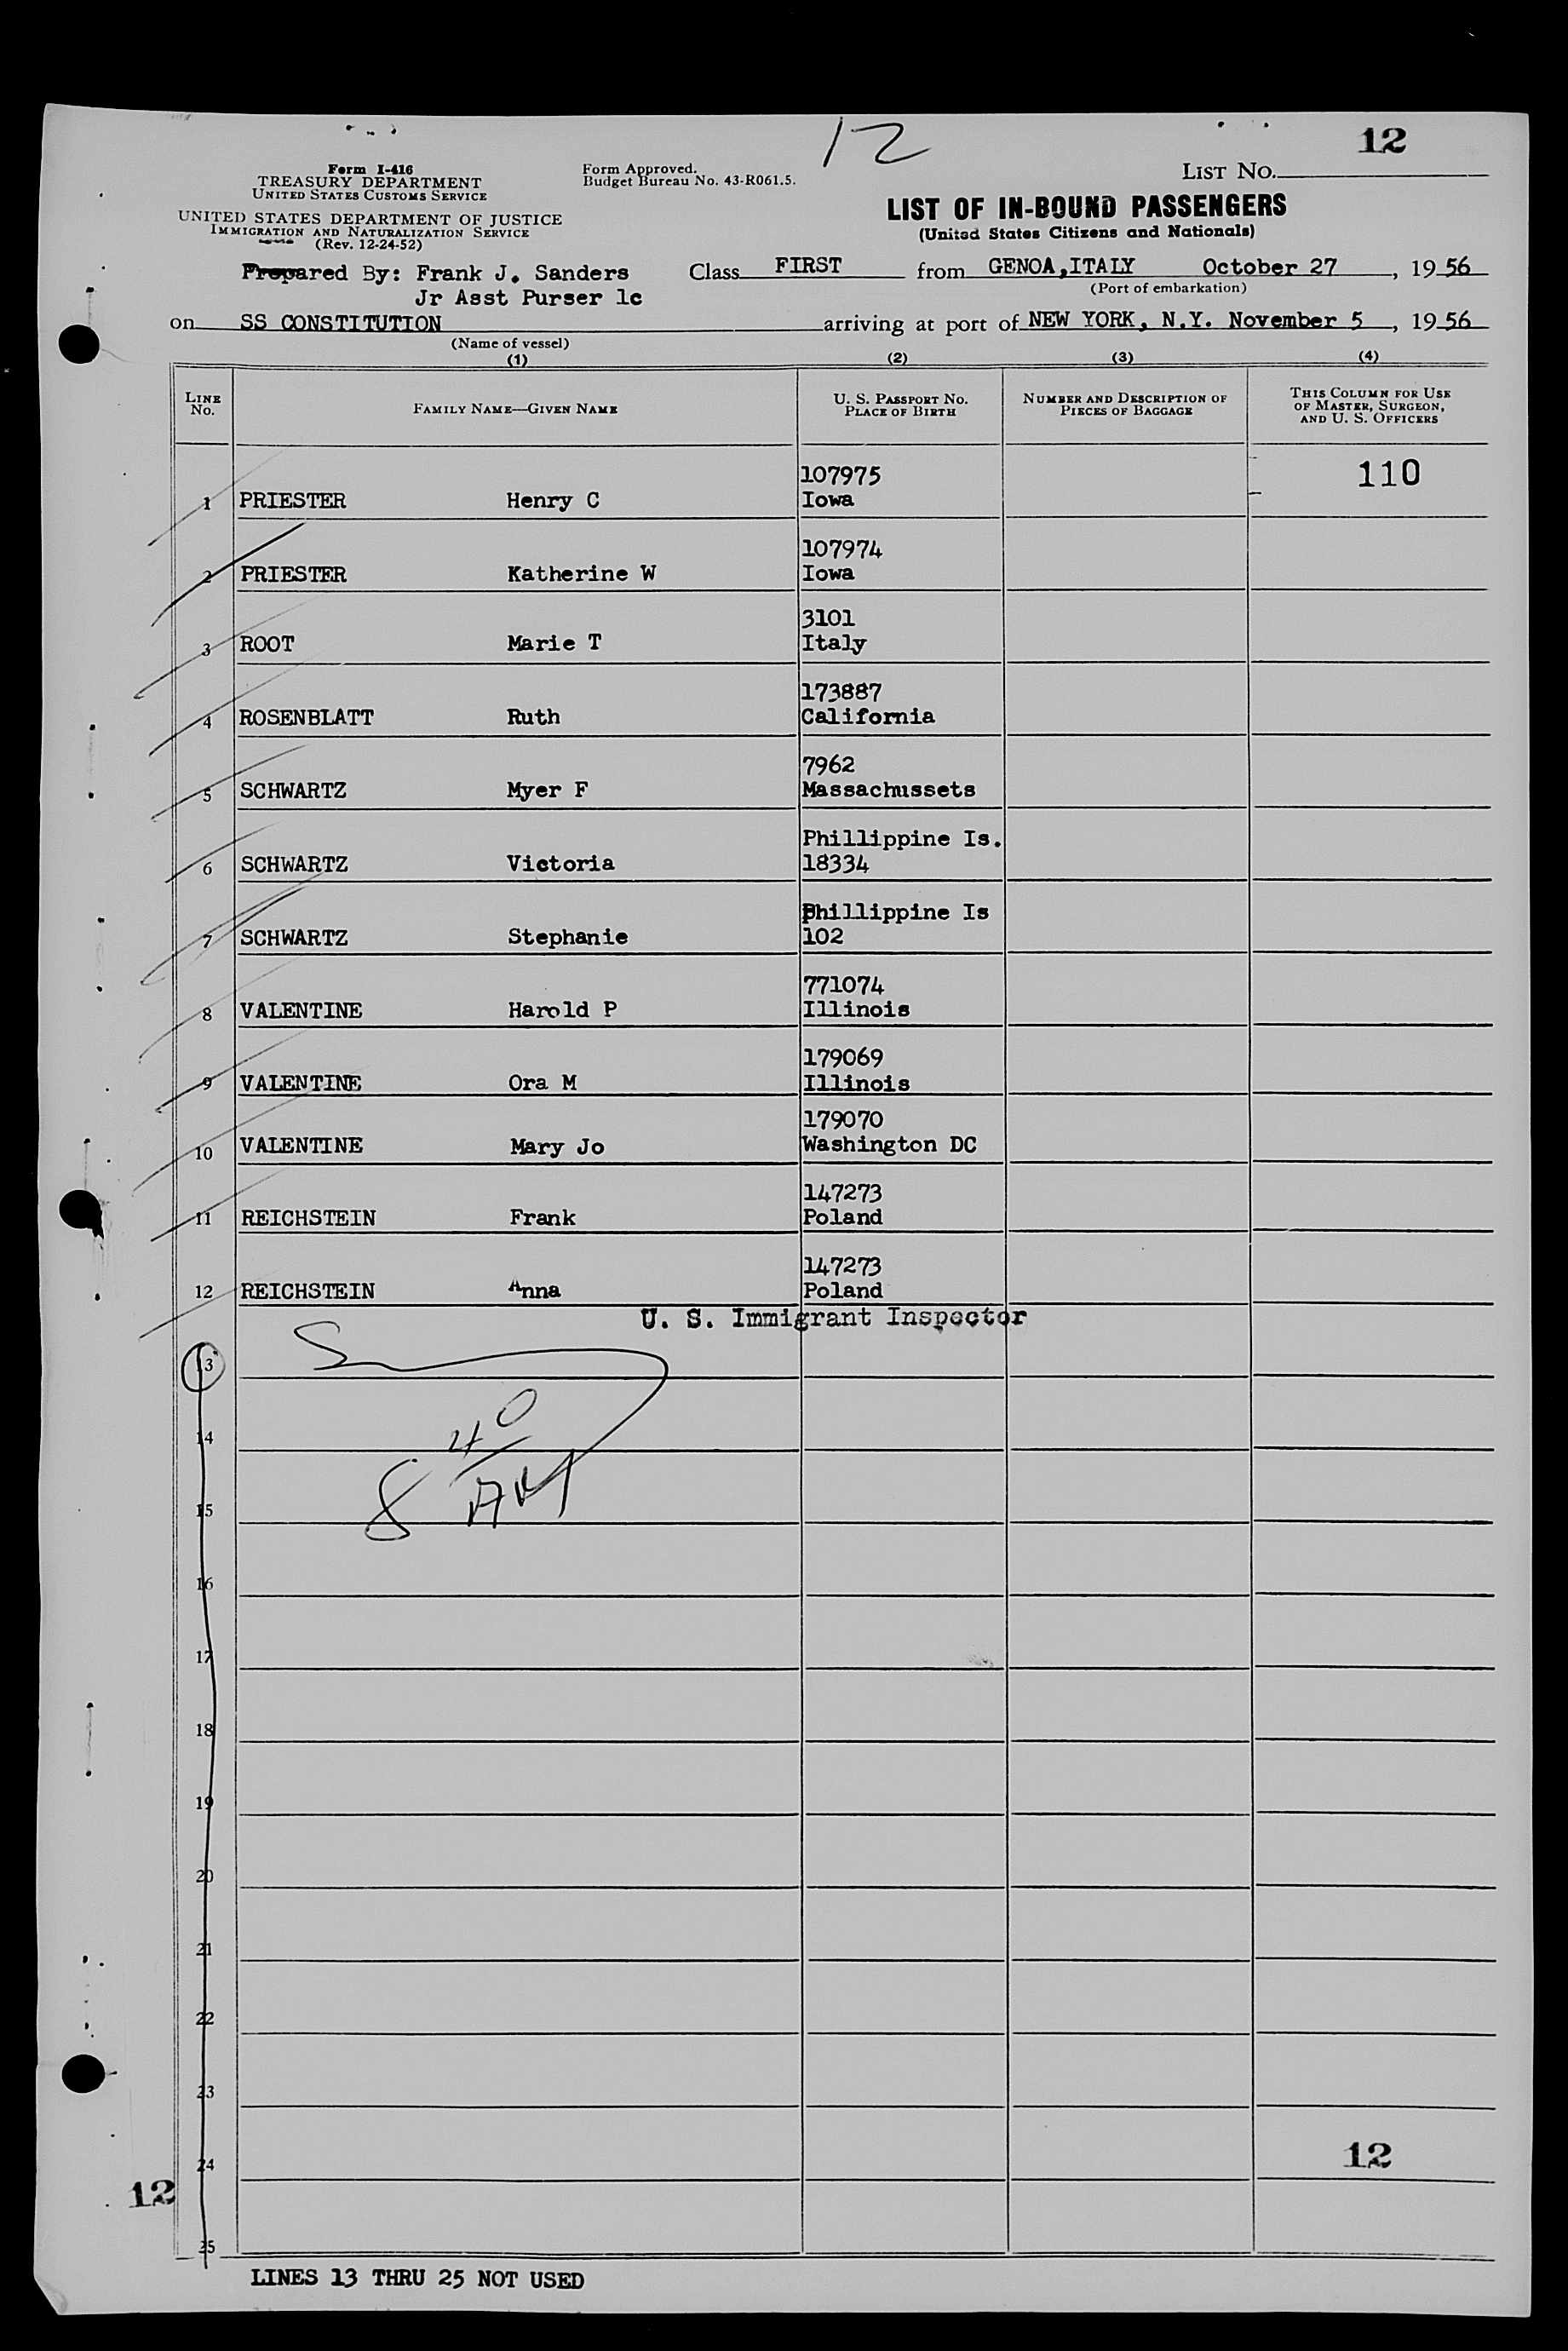 12
12
Form I-416
TREASURY DEPARTMENT
UNITED STATES CUSTOMS SERVICE
Form Approved.
Budget Bureau No. 43-R061.5.
LIST NO.
UNITED STATES DEPARTMENT OF JUSTICE
IMMIGRATION AND NATURALIZATION SERVICE
(Rev. 12-24-52)
LIST OF IN-BOUND PASSENGERS
(United States Citizens and Nationals)
Prepared By: Frank J. Sanders
Jr Asst Purser 1c
Class FIRST from GENOA,ITALY October 27, 1956
(Port of embarkation)
on SS CONSTITUTION arriving at port of NEW YORK, N.Y. November 5, 1956
(Name of vessel)
(1) (2) (3) (4)
LINE NO. FAMILY NAME—GIVEN NAME U. S. PASSPORT NO. PLACE OF BIRTH NUMBER AND DESCRIPTION OF PIECES OF BAGGAGE THIS COLUMN FOR USE OF MASTER, SURGEON, AND U. S. OFFICERS
107975 110
1 PRIESTER Henry C Iowa
107974
2 PRIESTER Katherine W Iowa
3101
3 ROOT Marie T Italy
173887
4 ROSENBLATT Ruth California
7962
5 SCHWARTZ Myer F Massachussets
Phillippine Is.
6 SCHWARTZ Victoria 18334
Phillippine Is
7 SCHWARTZ Stephanie 102
771074
8 VALENTINE Harold P Illinois
179069
9 VALENTINE Ora M Illinois
179070
10 VALENTINE Mary Jo Washington DC
147273
11 REICHSTEIN Frank Poland
147273
12 REICHSTEIN Anna Poland
U. S. Immigrant Inspector
13
14
8 40 AM
15
16
17
18
19
20
21
22
23
24
12
12
25
LINES 13 THRU 25 NOT USED